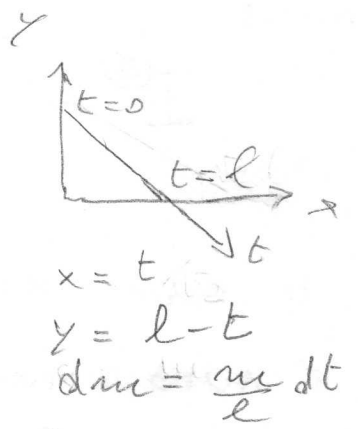 y
t=0
t=l
x
t
x = t
y = l-t
dm = m/l dt